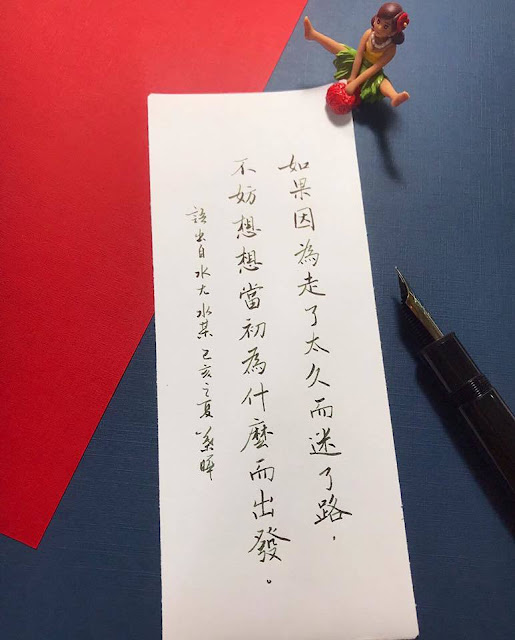 如果因為走了太久而迷了路，
不妨想想當初為什麼而出發。
語出自水尢水某 己亥之夏 葉曄